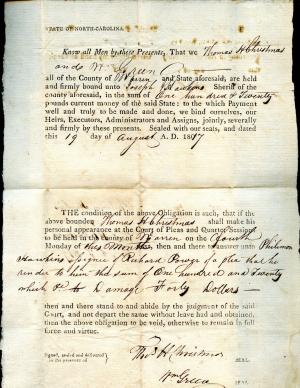 STATE OF NORTH-CAROLINA.
Know all Men by these Presents, That we Thomas H Christmas
and Wm Green
all of the County of Warren and State aforesaid, are held
and firmly bound unto Joseph Hawkins Sheriff of the
county aforesaid, in the sum of One hundred & Twenty
pounds current money of the said State: to the which Payment
well and truly to be made and done, we bind ourselves, our
Heirs, Executors, Administrators and Assigns, jointly, severally
and firmly by these presents. Sealed with our seals, and dated
this 19 day of August A. D.
THE condition of the above Obligation is such, that if the
above bounden Thomas H Christmas shall make
his personal appearance at the Court of Pleas and Quarter Sessions
to be held in the county of Warren on the fourth
Monday of this Month then and there to answer unto Philemon
Hawkins Assignee of Richard of a plea that he
render to him the sum of One hundred and Twenty
which &c to Damage Forty Dollars
then and there stand to and abide by the judgment of the said
Court, and not depart the same without leave had and obtained,
then the above obligation to be void, otherwise to remain in full
force and virtue.
Signed, sealed and delivered
in the presence of
Thos H Christmas SEAL.
Wm Green SEAL.